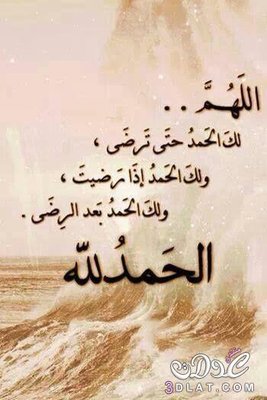 اللَهُمَّ . .
لكَ الحَمدُ حتَى تَرضَى ،
ولكَ الحَمدُ إذَا رَضيتَ ،
ولكَ الحَمدُ بَعد الرِضَى .
الحَمدُلله
عدلات
3DLAT.COM